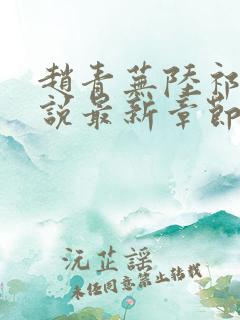 趙青蕪陸祁
說最新章節
沅芷謠
未經同意禁止轉載